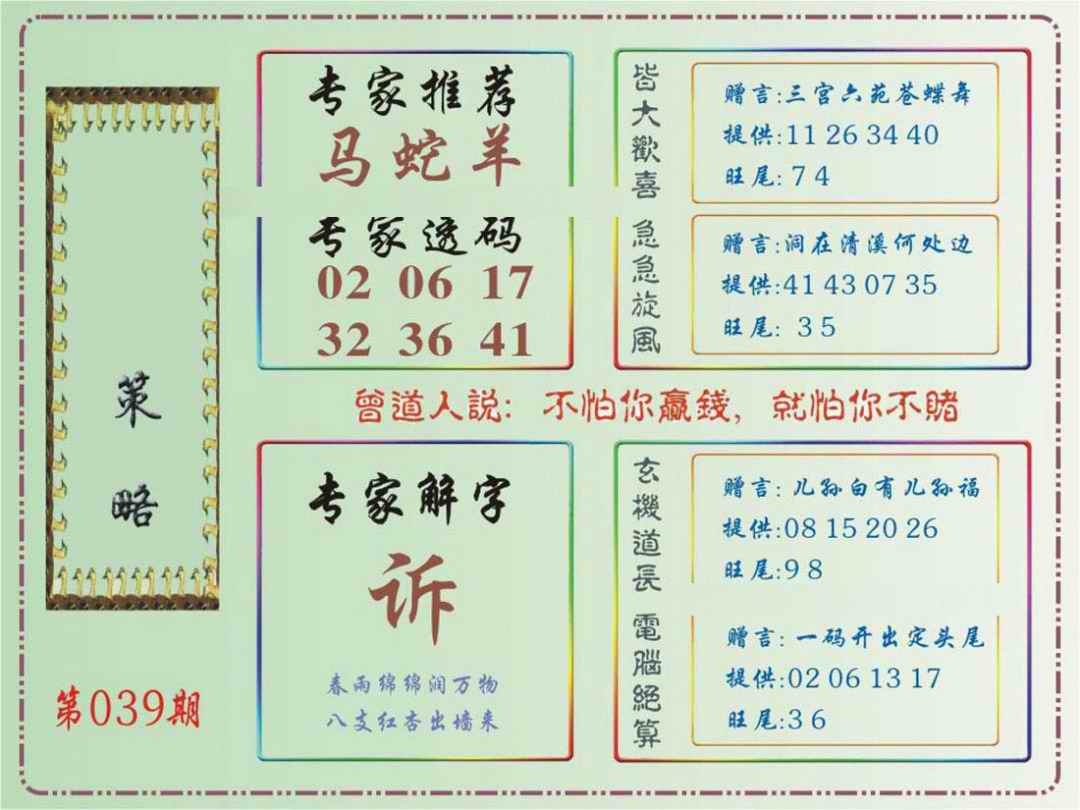 策略
第039期
专家推荐
马蛇羊
专家透码
02 06 17
32 36 41
皆大歡喜
赠言:三宫六苑苍蝶舞
提供:11 26 34 40
旺尾:7 4
急急旋風
赠言:洞在清溪何处边
提供:41 43 07 35
旺尾: 3 5
曾道人説: 不怕你赢錢, 就怕你不賭
专家解字
诉
春雨绵绵润万物
八支红杏出墙来
玄機道長
赠言: 儿孙自有儿孙福
提供:08 15 20 26
旺尾:9 8
電腦絕算
赠言: 一码开出定头尾
提供:02 06 13 17
旺尾:3 6